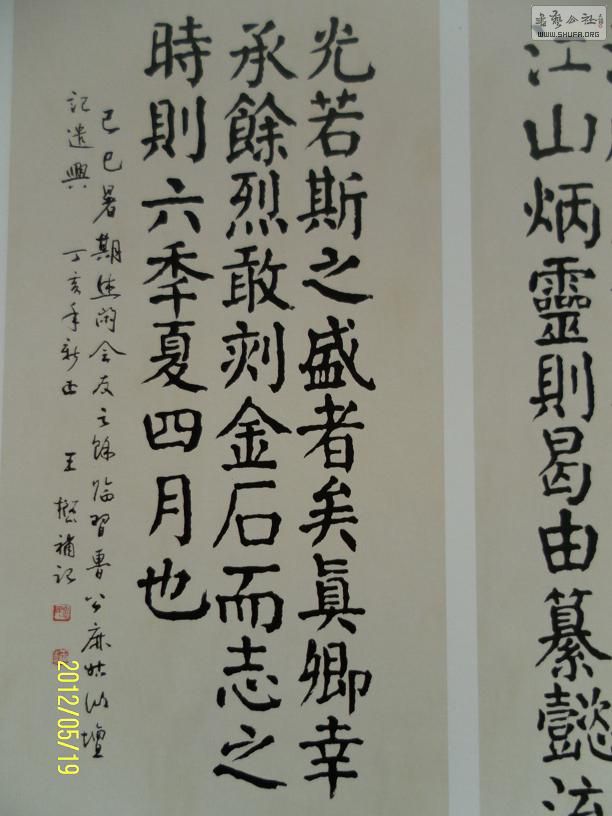 書藝公社
WWW.SHUFA.ORG
江山炳靈則曷由纂懿流
光若斯之盛者矣眞卿幸
承餘烈敢刻金石而志之
時則六秊夏四月也
己巳暑期閑会友之餘臨習魯公麻姑仙壇
記遣興 丁亥年新正 王補記
2012/05/19